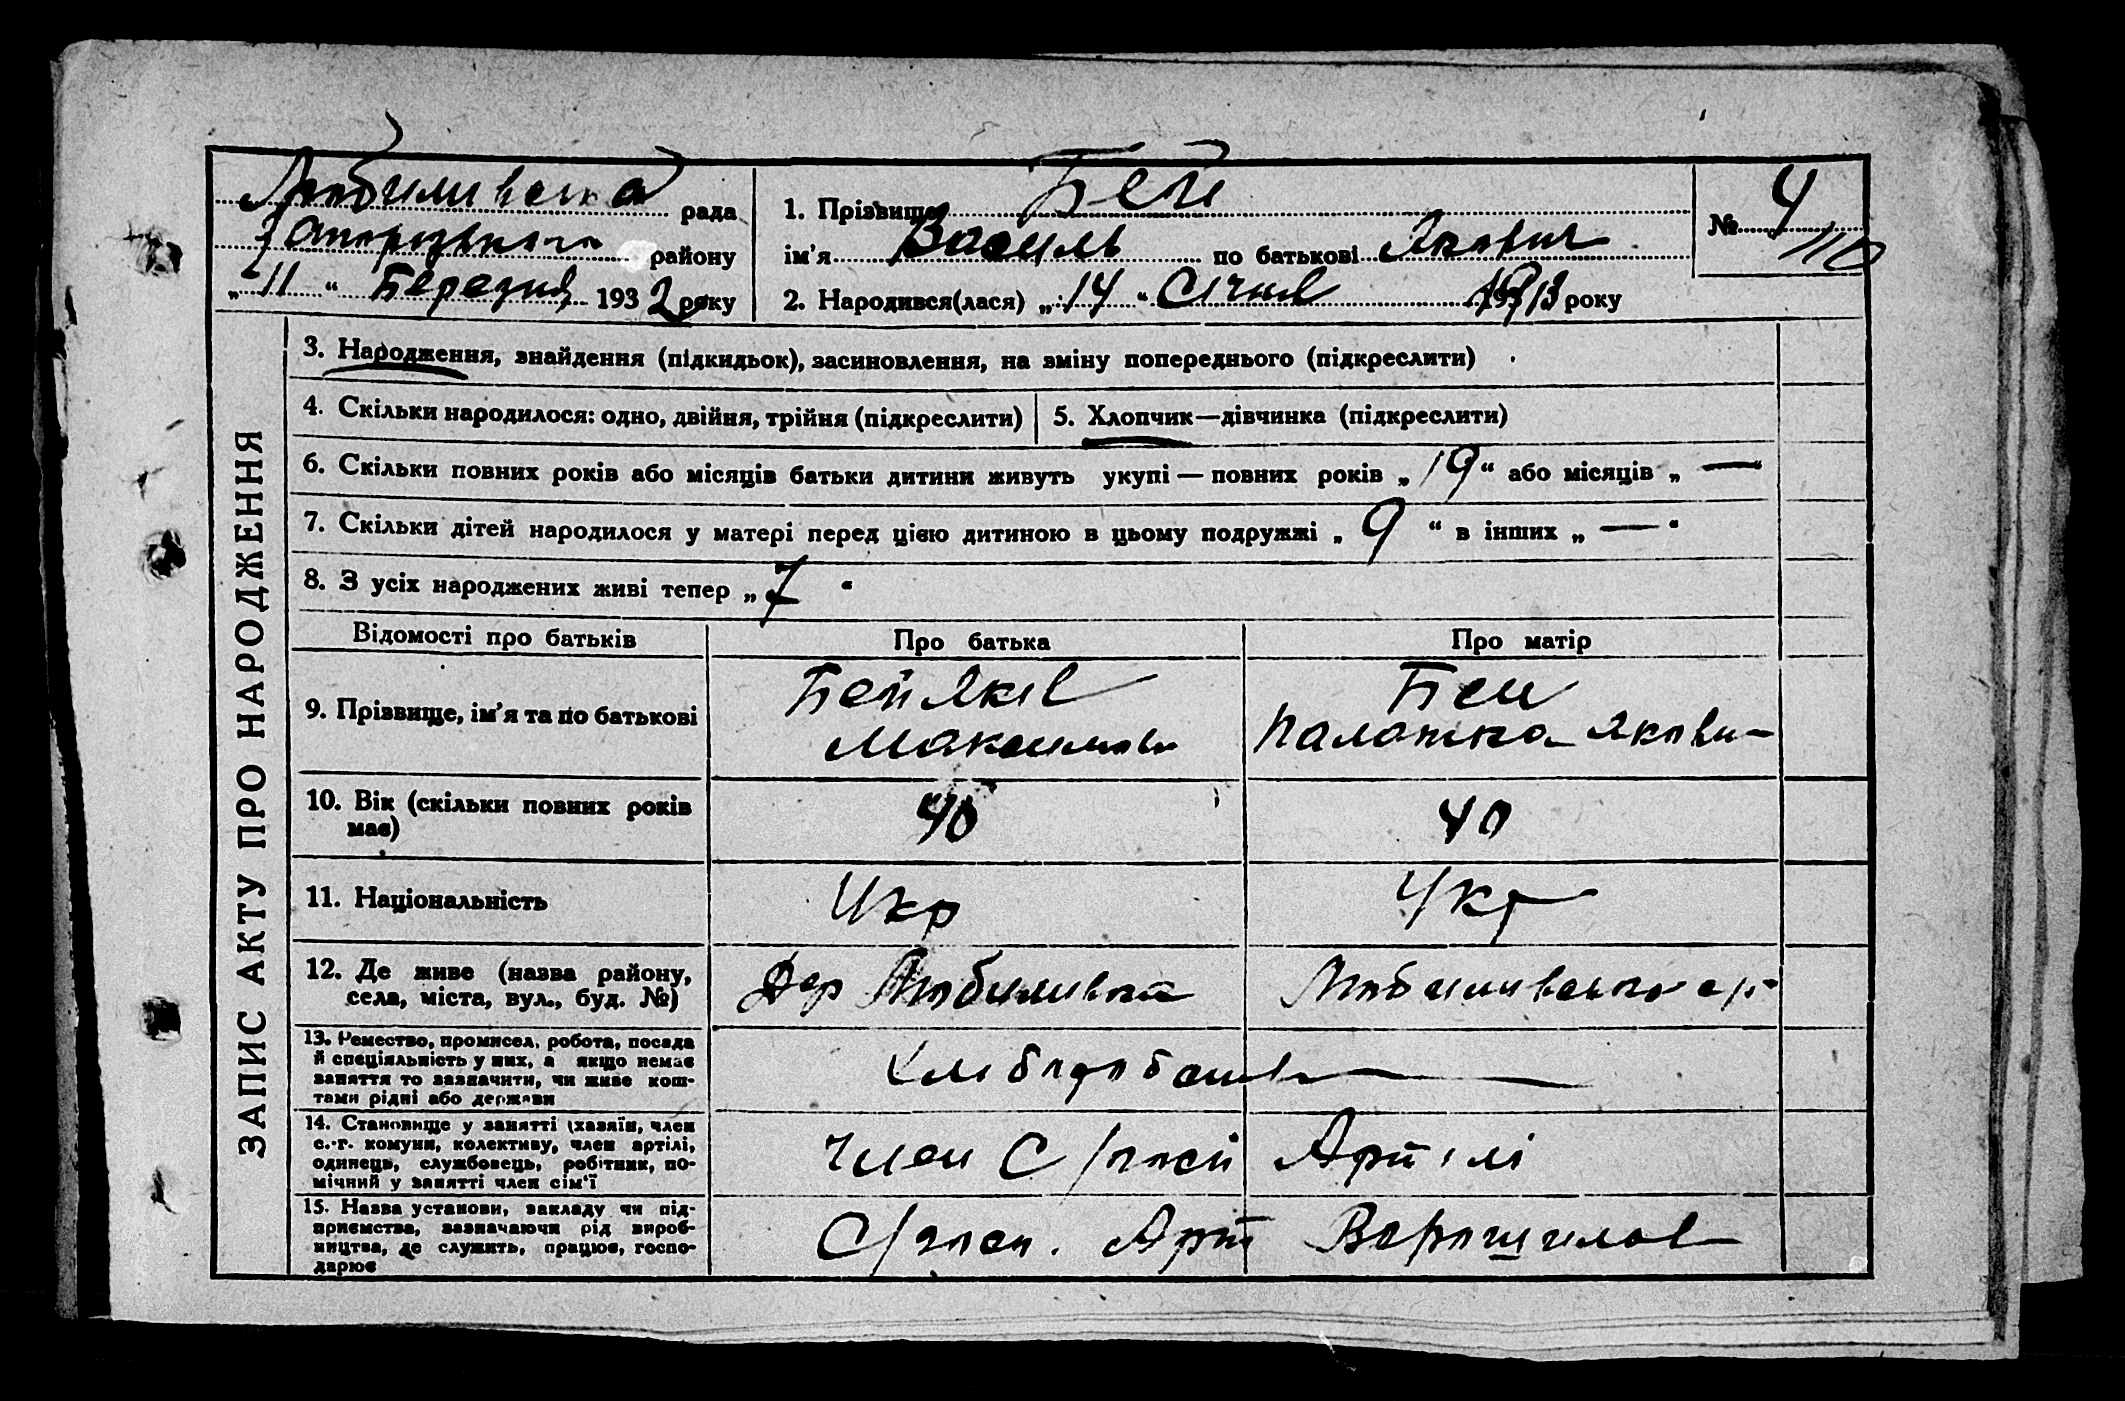 Любимивська рада
Запорізького району
„ 11 “ Березня 1932 року
1. Прізвище Бей
ім’я Василь по батькові Якович
2. Народився(лася) „ 14 “ Січня 1913 року
№ 4
110
ЗАПИС АКТУ ПРО НАРОДЖЕННЯ
3. Народження, знайдення (підкидьок), засиновлення, на зміну попереднього (підкреслити)
4. Скільки народилося: одно, двійня, трійня (підкреслити)
5. Хлопчик—дівчинка (підкреслити)
6. Скільки повних років або місяців батьки дитини живуть укупі — повних років „ 19 “ або місяців „ — “
7. Скільки дітей народилося у матері перед цією дитиною в цьому подружжі „ 9 “ в інших „ — “
8. З усіх народжених живі тепер „ 7 “
Відомості про батьків Про батька Про матір
9. Прізвище, ім’я та по батькові
Бей Яків
Максимов
Бей
Палажка Якови-
10. Вік (скільки повних років
має)
40 40
11. Національність Укр Укр
12. Де живе (назва району,
села, міста, вул., буд. №)
Дер Любимивка Любимивського
13. Ремество, промисел, робота, посада
й спеціяльність у них, а якщо немає
заняття то зазначити, чи живе кош-
тами рідні або держави
Хлиборобаив
14. Становище у занятті (хазяїн, член
с.-г. комуни, колективу, член артілі,
одинець, службовець, робітник, по-
мічний у занятті член сім’ї
Член С/госп Артілі
15. Назва установи, закладу чи під-
приємства, зазначаючи рід вироб-
ництва, де служить, працює, госпо-
дарює
С/госп. Арт Ворошилов